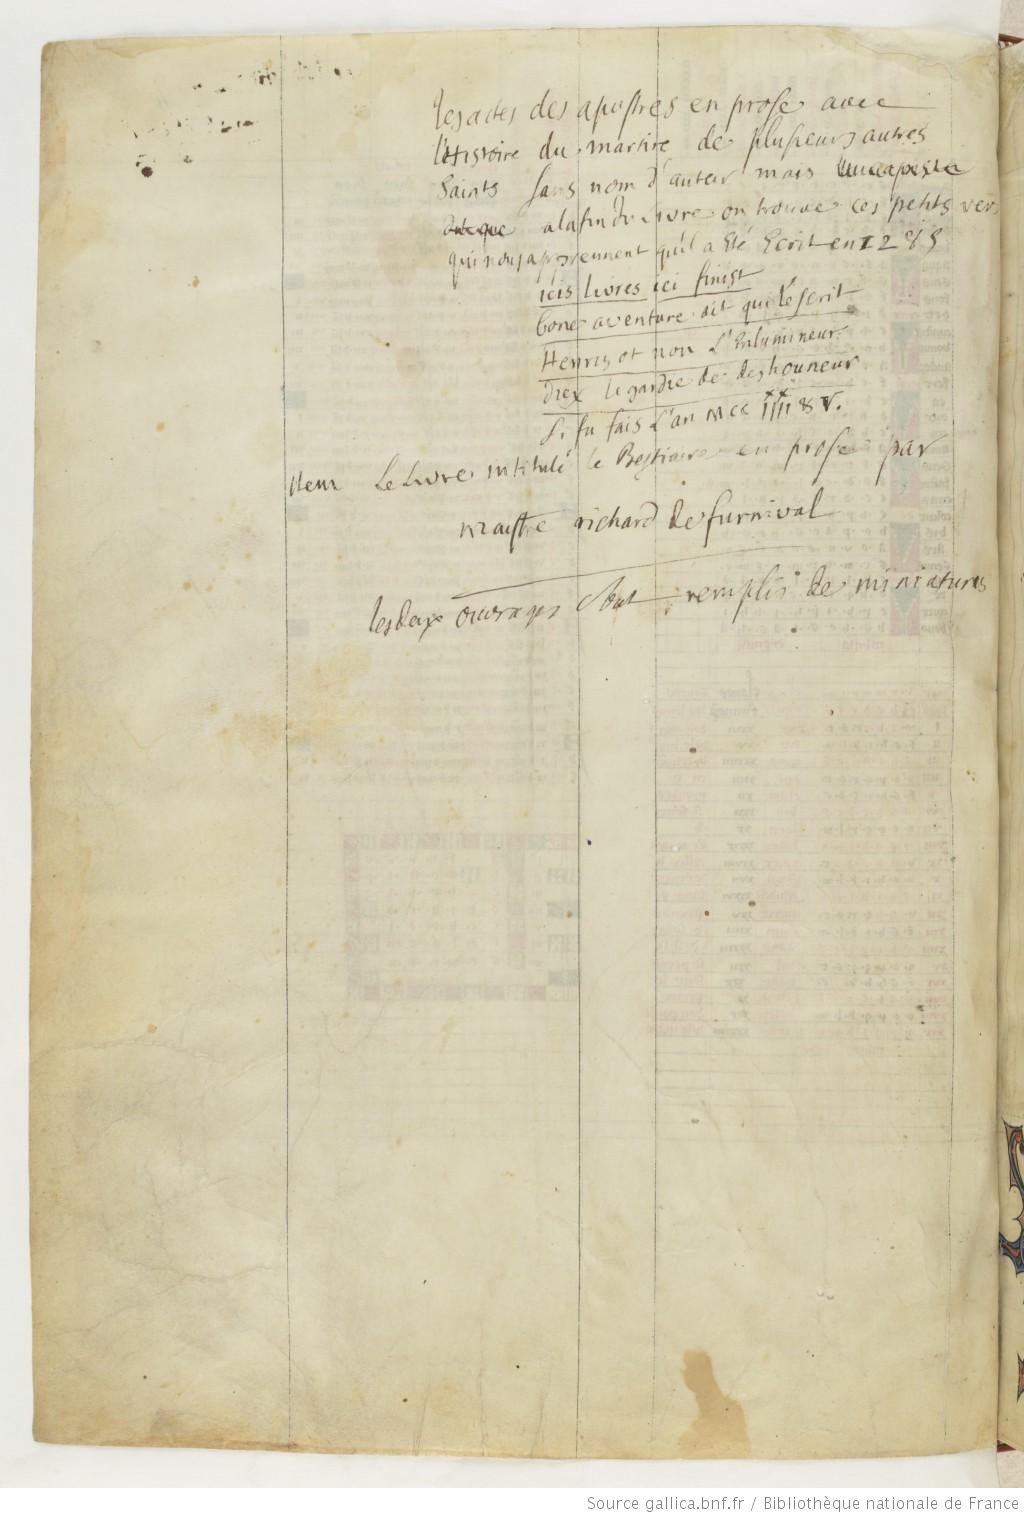 les actes des apostres en prose avec
l'histoire du martire de plusieurs autres
saints sans nom d'auteur mais
a la fin du livre on trouve ces petits vers
qui nous aprennent qu'il a été Ecrit en 1285
icis livres ici finist
bone aventure ait qui l'escrit
Henris ot non l'Enlumineur
Diex le gardie de deshouneur
si fu fais l'an MCC IIII XX & V.
Item Le Livre intitulé le Bestiaire en prose par
maistre richard de furnival
les deux ouvrages sont remplis de miniatures
Source gallica.bnf.fr / Bibliothèque nationale de France